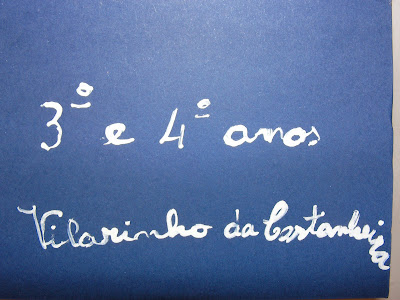 3º e 4º anos
Vilarinho da Castanheira